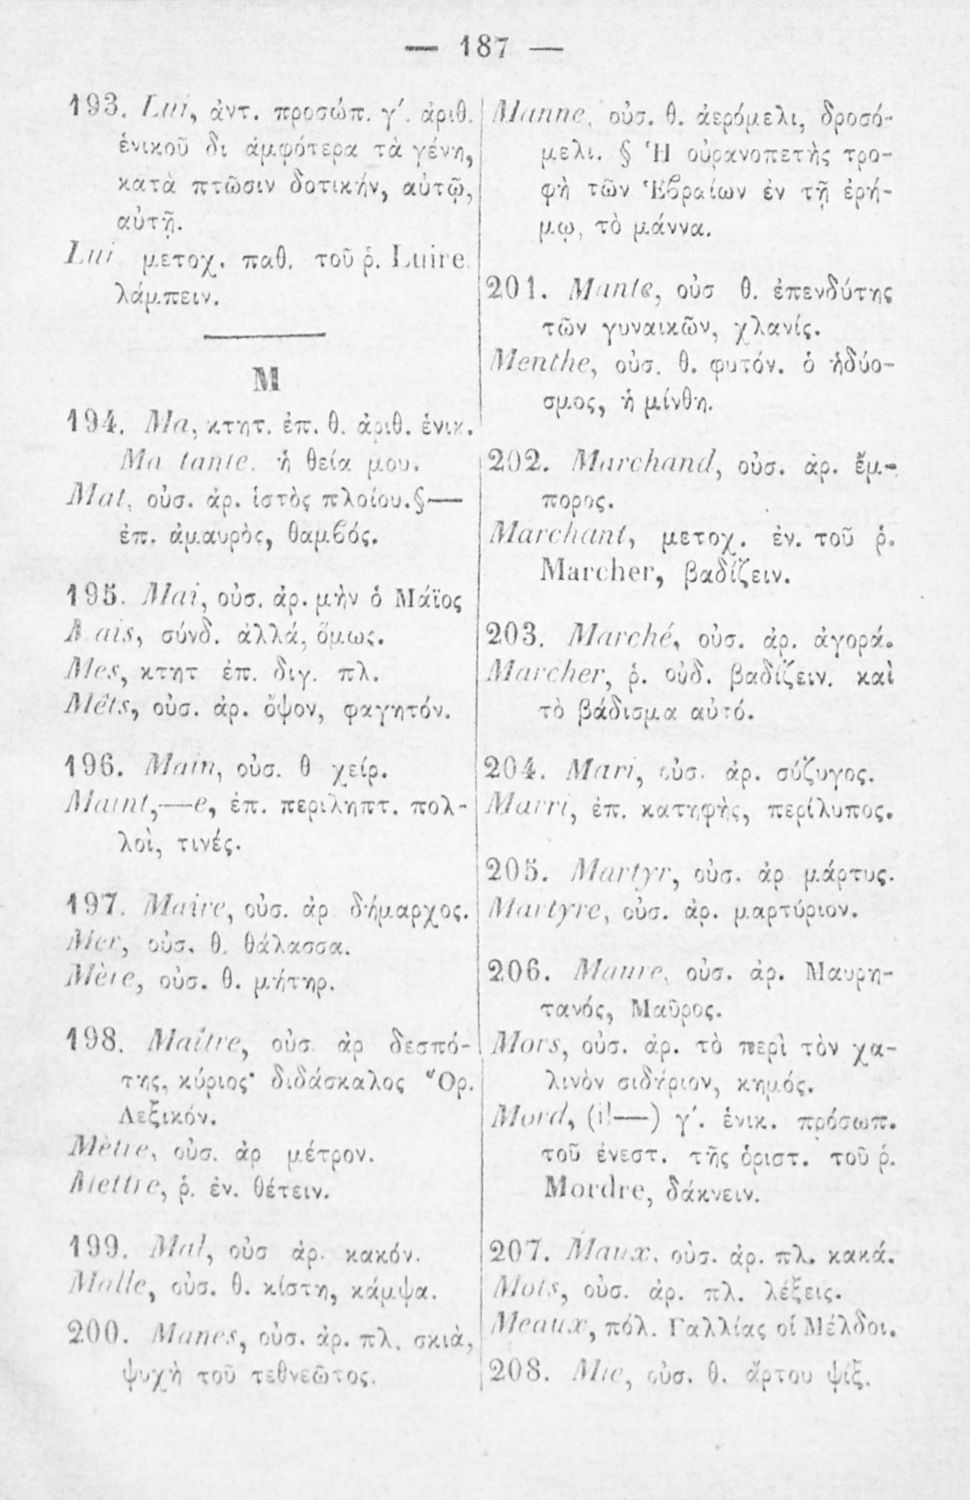 — 187 —
193. Lui, ἀντ. προσώπ. γ΄. ἀριθ.
ἑνικοῦ δι ἀμφότερα τὰ γένη,
κατὰ πτῶσιν δοτικήν, αὐτῷ,
αὐτῇ.
Lui μετοχ. παθ. τοῦ ῥ. Luire
λάμπειν.
M
194. Ma, κτητ. ἐπ. θ. ἀριθ. ἑνικ.
Ma tante. ἡ θεία μου.
Mat, οὐσ. ἀρ. ἱστὸς πλοίου.§—
ἐπ. ἀμαυρὸς, θαμβός.
195. Mai, οὐσ. ἀρ. μὴν ὁ Μάϊος
Mais, σύνδ. ἀλλά, ὅμως.
Mes, κτητ ἐπ. διγ. πλ.
Mêts, οὐσ. ἀρ. ὄψον, φαγητόν.
196. Main, οὐσ. θ χείρ.
Maint,—e, ἐπ. περιληπτ. πολ-
λοὶ, τινές.
197. Maire, οὐσ. ἀρ δήμαρχος.
Mer, οὐσ. θ. θάλασσα.
Mère, οὐσ. θ. μήτηρ.
198. Maître, οὐσ ἀρ δεσπό-
της, κύριος· διδάσκαλος Ὅρ.
Λεξικόν.
Mètre, οὐσ. ἀρ μέτρον.
Mettre, ῥ. ἐν. θέτειν.
199. Mal, οὐσ ἀρ. κακόν.
Malle, οὐσ. θ. κίστη, κάμψα.
200. Manes, οὐσ. ἀρ. πλ. σκιὰ,
ψυχὴ τοῦ τεθνεῶτος.
Manne, οὐσ. θ. ἀερόμελι, δροσό-
μελι. § Ἡ οὐρανοπετὴς τρο-
φὴ τῶν Ἑβραίων ἐν τῇ ἐρή-
μῳ, τὸ μάννα.
201. Mante, οὐσ θ. ἐπενδύτης
τῶν γυναικῶν, χλανίς.
Menthe, οὐσ. θ. φυτόν. ὁ ἡδύο-
σμος, ἡ μίνθη.
202. Marchand, οὐσ. ἀρ. ἔμ-
πορος.
Marchant, μετοχ. ἐν. τοῦ ῥ.
Marcher, βαδίζειν.
203. Marché, οὐσ. ἀρ. ἀγορά.
Marcher, ῥ. οὐδ. βαδίζειν. καὶ
τὸ βάδισμα αὐτό.
204. Mari, οὐσ. ἀρ. σύζυγος.
Marri, ἐπ. κατηφὴς, περίλυπος.
205. Martyr, οὐσ. ἀρ μάρτυς.
Martyre, οὐσ. ἀρ. μαρτύριον.
206. Maure, οὐσ. ἀρ. Μαυρη-
τανός, Μαῦρος.
Mors, οὐσ. ἀρ. τὸ περὶ τὸν χα-
λινὸν σιδήριον, κημός.
Mord, (il—) γ΄. ἑνικ. πρόσωπ.
τοῦ ἐνεστ. τῆς ὁριστ. τοῦ ῥ.
Mordre, δάκνειν.
207. Maux. οὐσ. ἀρ. πλ. κακά.
Mots, οὐσ. ἀρ. πλ. λέξεις.
Meaux, πόλ. Γαλλίας οἱ Μέλδοι.
208. Mie, οὐσ. θ. ἄρτου ψίξ.